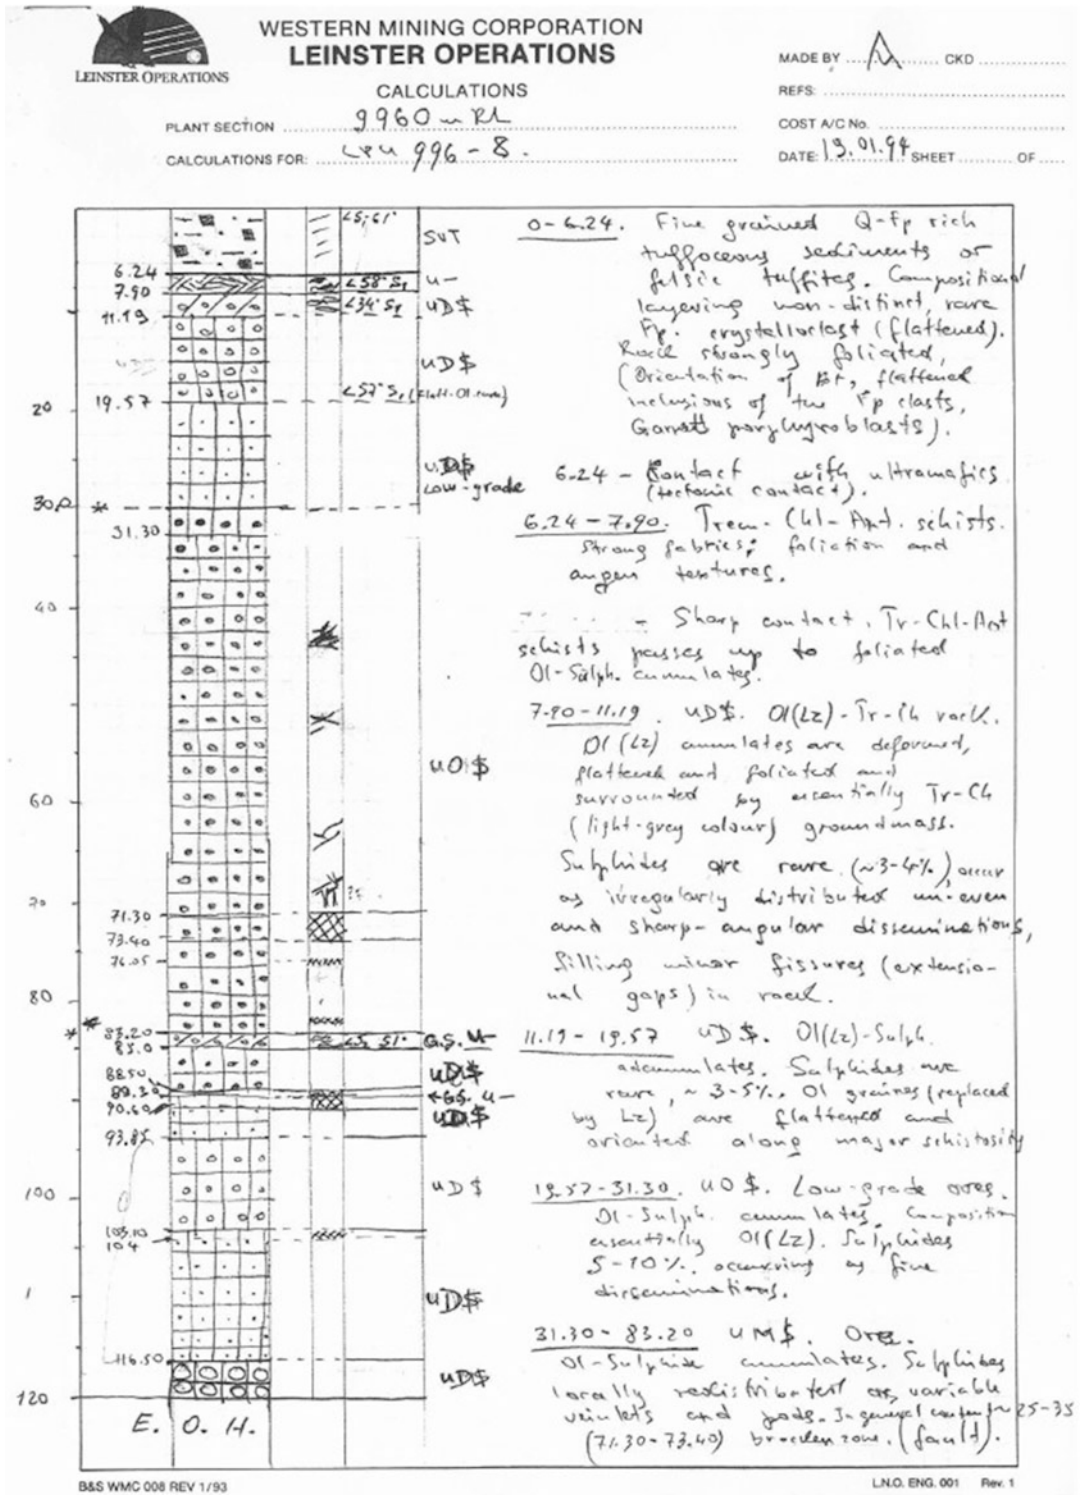 WESTERN MINING CORPORATION
LEINSTER OPERATIONS
LEINSTER OPERATIONS
CALCULATIONS
PLANT SECTION 9960 m RL
CALCULATIONS FOR: 996-8.
MADE BY CKD
REFS:
COST A/C No.
DATE: 19.01.94 SHEET OF
∠S, 61°
SVT
6.24
∠58° S1
U-
7.90
∠34° S1
UD$
11.19
UD$
19.57
∠57° S1
20
UD$
Low-grade
30.0 *
31.30
40
UO$
60
70
71.30
73.40
76.05
80
*
83.20
85.0
∠S, 51°
G.S. U-
88.50
UD$
89.30
←G.S. U-
90.60
UD$
93.85
100
UD$
103.10
104
UD$
116.50
UD$
120
E. O. H.
0-6.24. Fine grained Q-Fp rich
tuffoceous sediments or
felsic tuffites. Compositional
layering non-distinct, rare
Fp. crystalloclast (flattened).
Rock strongly foliated,
(Orientation of Bt, flattened
inclusions of the Fp clasts,
Garnett porphyroblasts).
6.24 - Contact with ultramafics
(tectonic contact).
6.24-7.90. Trem-Chl-Ant. schists.
Strong fabrics; foliation and
augen textures.
- Sharp contact, Tr-Chl-Ant
schists passes up to foliated
Ol-Sulph. cumulates.
7.90-11.19. UD$. Ol(Lz)-Tr-Ch rock.
Ol(Lz) cumulates are deformed,
flattened and foliated and
surrounded by esentially Tr-Ch
(light-grey colour) groundmass.
Sulphides are rare (~3-4%), occur
as irregularly distributed un-even
and sharp-angular disseminations,
filling minor fissures (extensio-
nal gaps) in rock.
11.19-19.57 UD$. Ol(Lz)-Sulph.
adcumulates. Sulphides are
rare, ~3-5%. Ol graines (replaced
by Lz) are flattened and
oriented along major schistosity
19.57-31.30. UO$. Low-grade ores.
Ol-Sulph. cumulates. Composition
esentially Ol(Lz). Sulphides
5-10%, occurring as fine
disseminations.
31.30-83.20 UM$. Ores.
Ol-Sulphide cumulates. Sulphides
locally redistributed as variable
veinlets and pods. In general content ~25-35
(71.30-73.40) brocken zone. (fault).
B&S WMC 008 REV 1/93
L.N.O. ENG. 001 Rev. 1